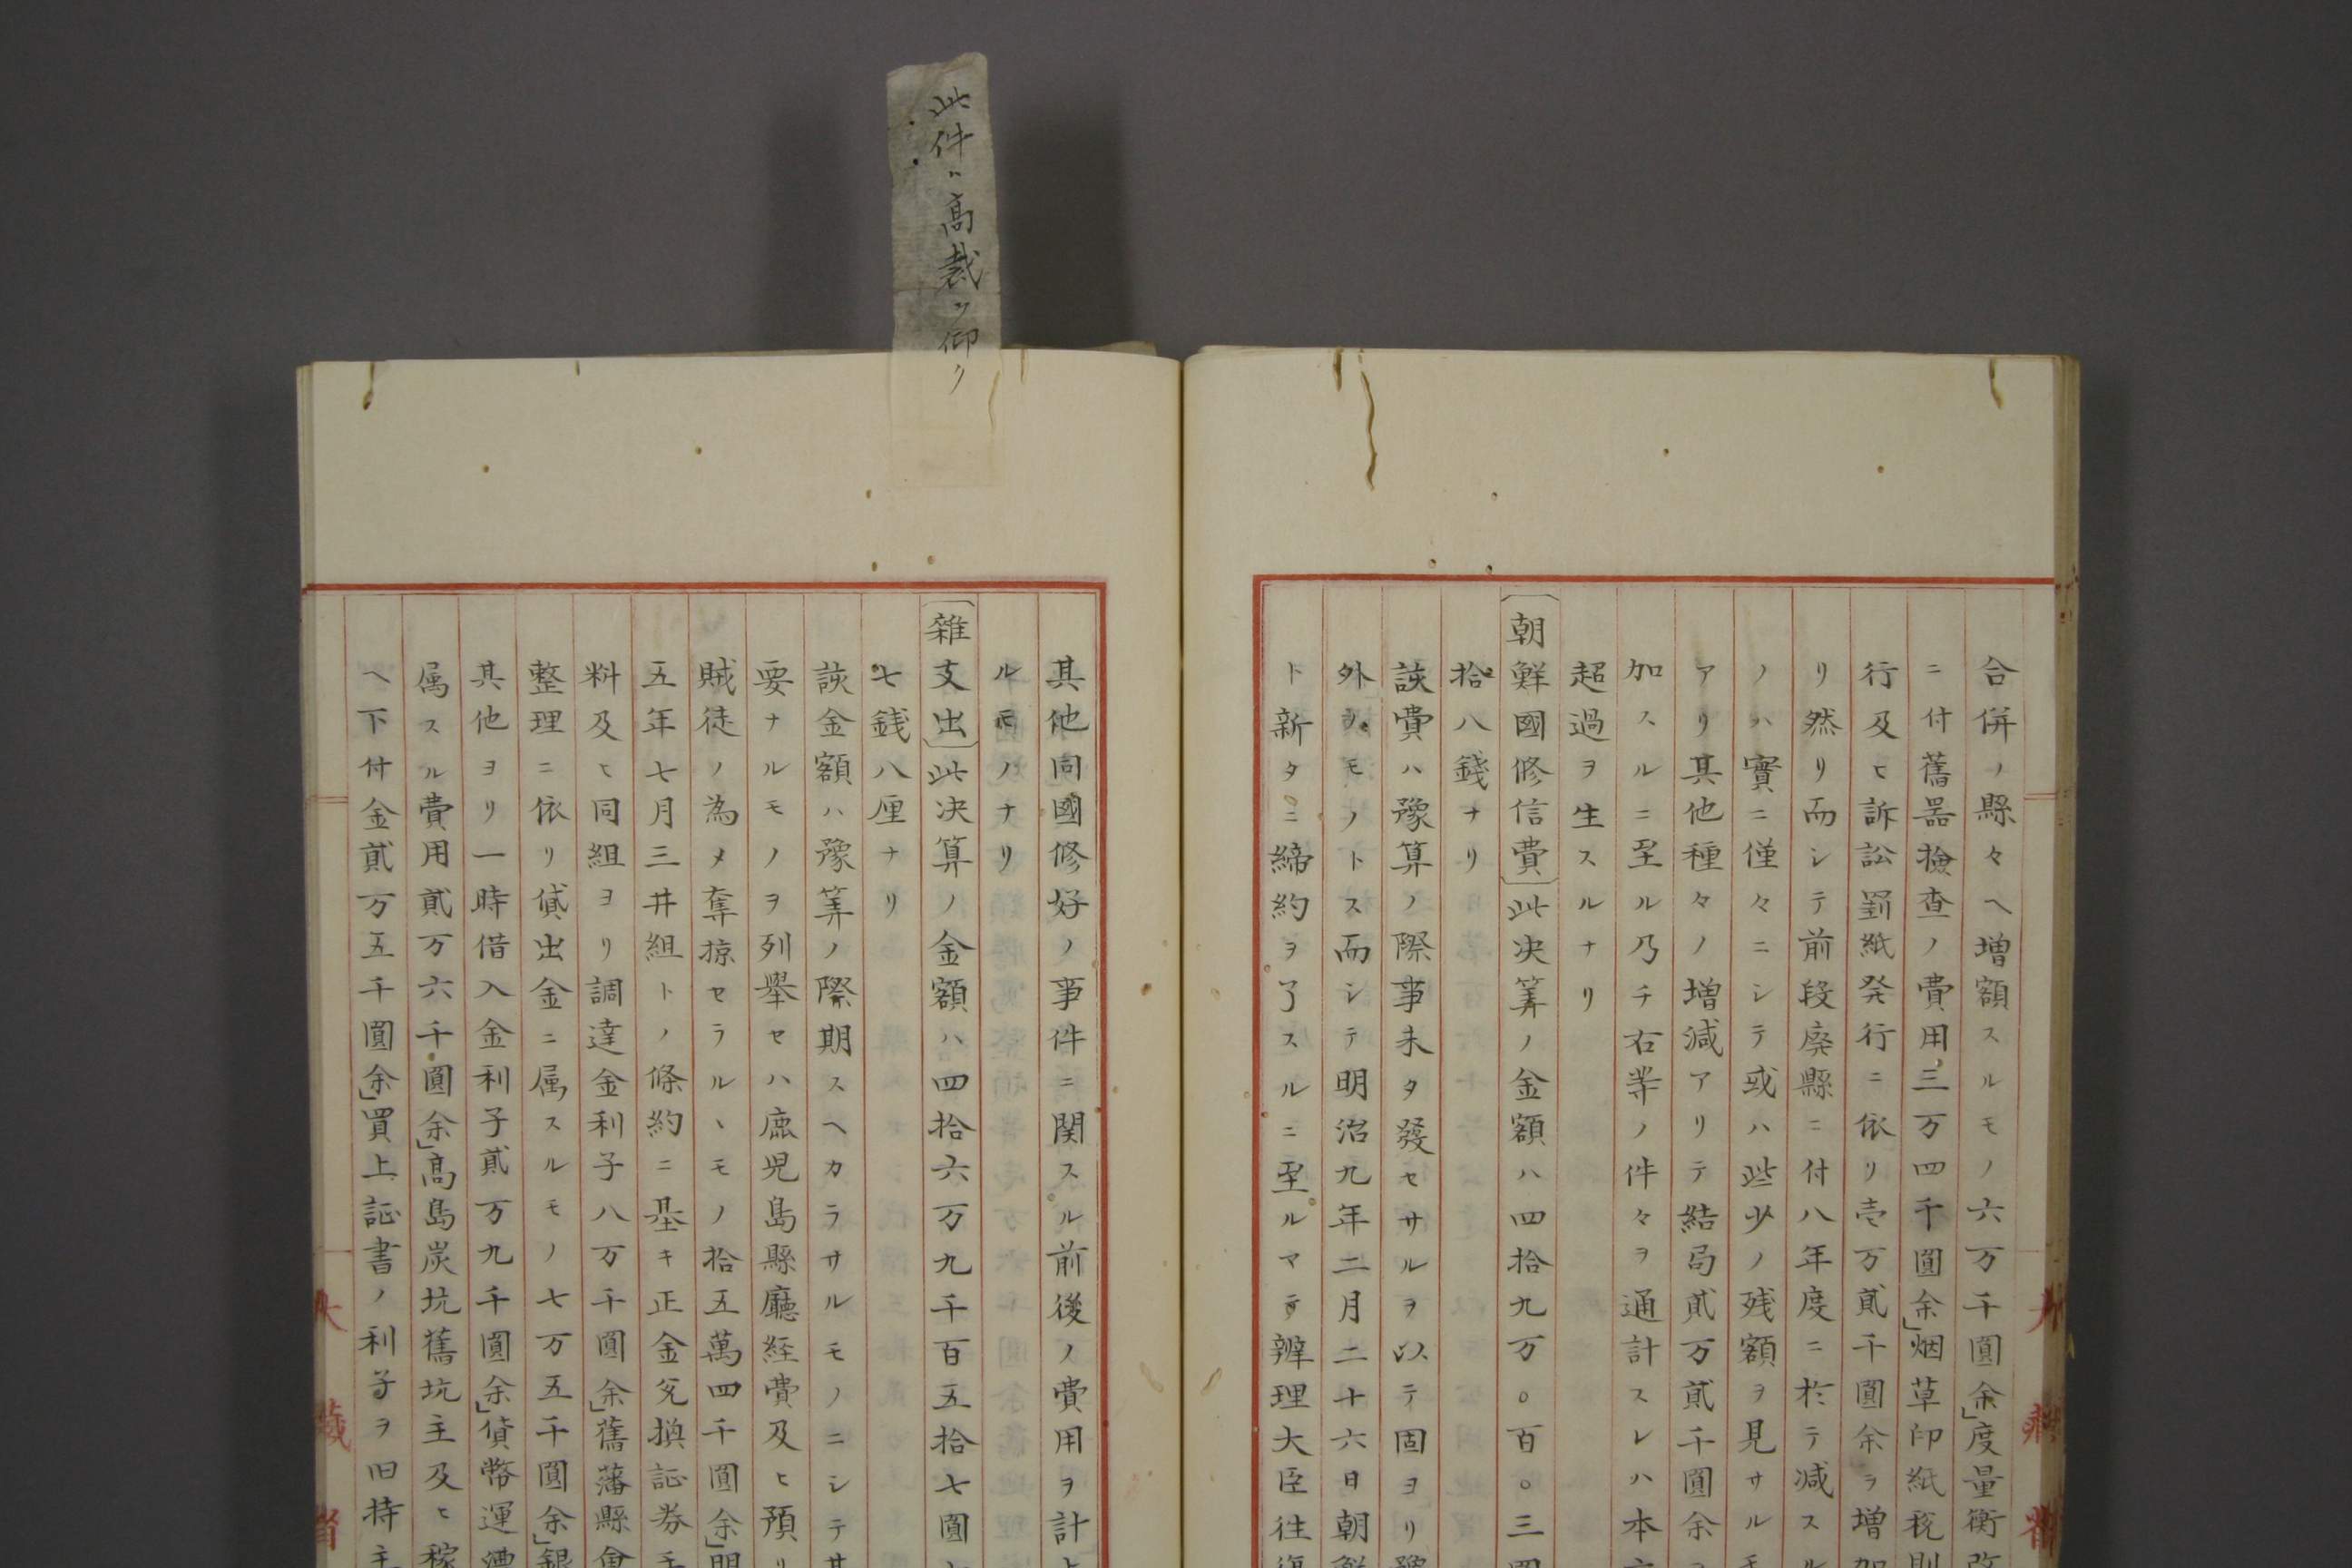 此件ハ高裁ヲ仰ク
合併ノ縣々ヘ増額スルモノ六万千圓余」度量衡改
ニ付舊器檢查ノ費用三万四千圓余」烟草印紙税則
行及ヒ訴訟罰紙発行ニ依リ壱万貳千圓余ヲ増加
リ然リ而シテ前段廃縣ニ付八年度ニ於テ減スル
ノハ實ニ僅々ニシテ或ハ些少ノ残額ヲ見サルモ
アリ其他種々ノ増減アリテ結局貳万貳千圓余ヲ
加スルニ至ル乃チ右等ノ件々ヲ通計スレハ本
超過ヲ生スルナリ
〔朝鮮國修信費〕此决筭ノ金額ハ四拾九万〇百〇三圓
拾八錢ナリ
該費ハ豫算ノ際事未タ發セサルヲ以テ固ヨリ豫
外ノモノトス而シテ明治九年二月二十六日朝鮮
ト新タニ締約ヲ了スルニ至ルマテ辨理大臣往復
其他同國修好ノ事件ニ関スル前後ノ費用ヲ計上
ルモノナリ
〔雜支出〕此决算ノ金額ハ四拾六万九千百五拾七圓
七銭八厘ナリ
該金額ハ豫筭ノ際期スヘカラサルモノニシテ其
要ナルモノヲ列舉セハ鹿児島縣廳経費及ヒ預リ
賊徒ノ為メ奪掠セラルヽモノ拾五萬四千圓余」明
五年七月三井組トノ條約ニ基キ正金兌換証券手
料及ヒ同組ヨリ調達金利子八万千圓余」舊藩縣會
整理ニ依リ貸出金ニ属スルモノ七万五千圓余」銀
其他ヨリ一時借入金利子貳万九千圓余」貨幣運漕
属スル費用貳万六千圓余」高島炭坑舊坑主及ヒ稼
ヘ下付金貳万五千圓余」買上証書ノ利子ヲ旧持主
大藏省
大藏省